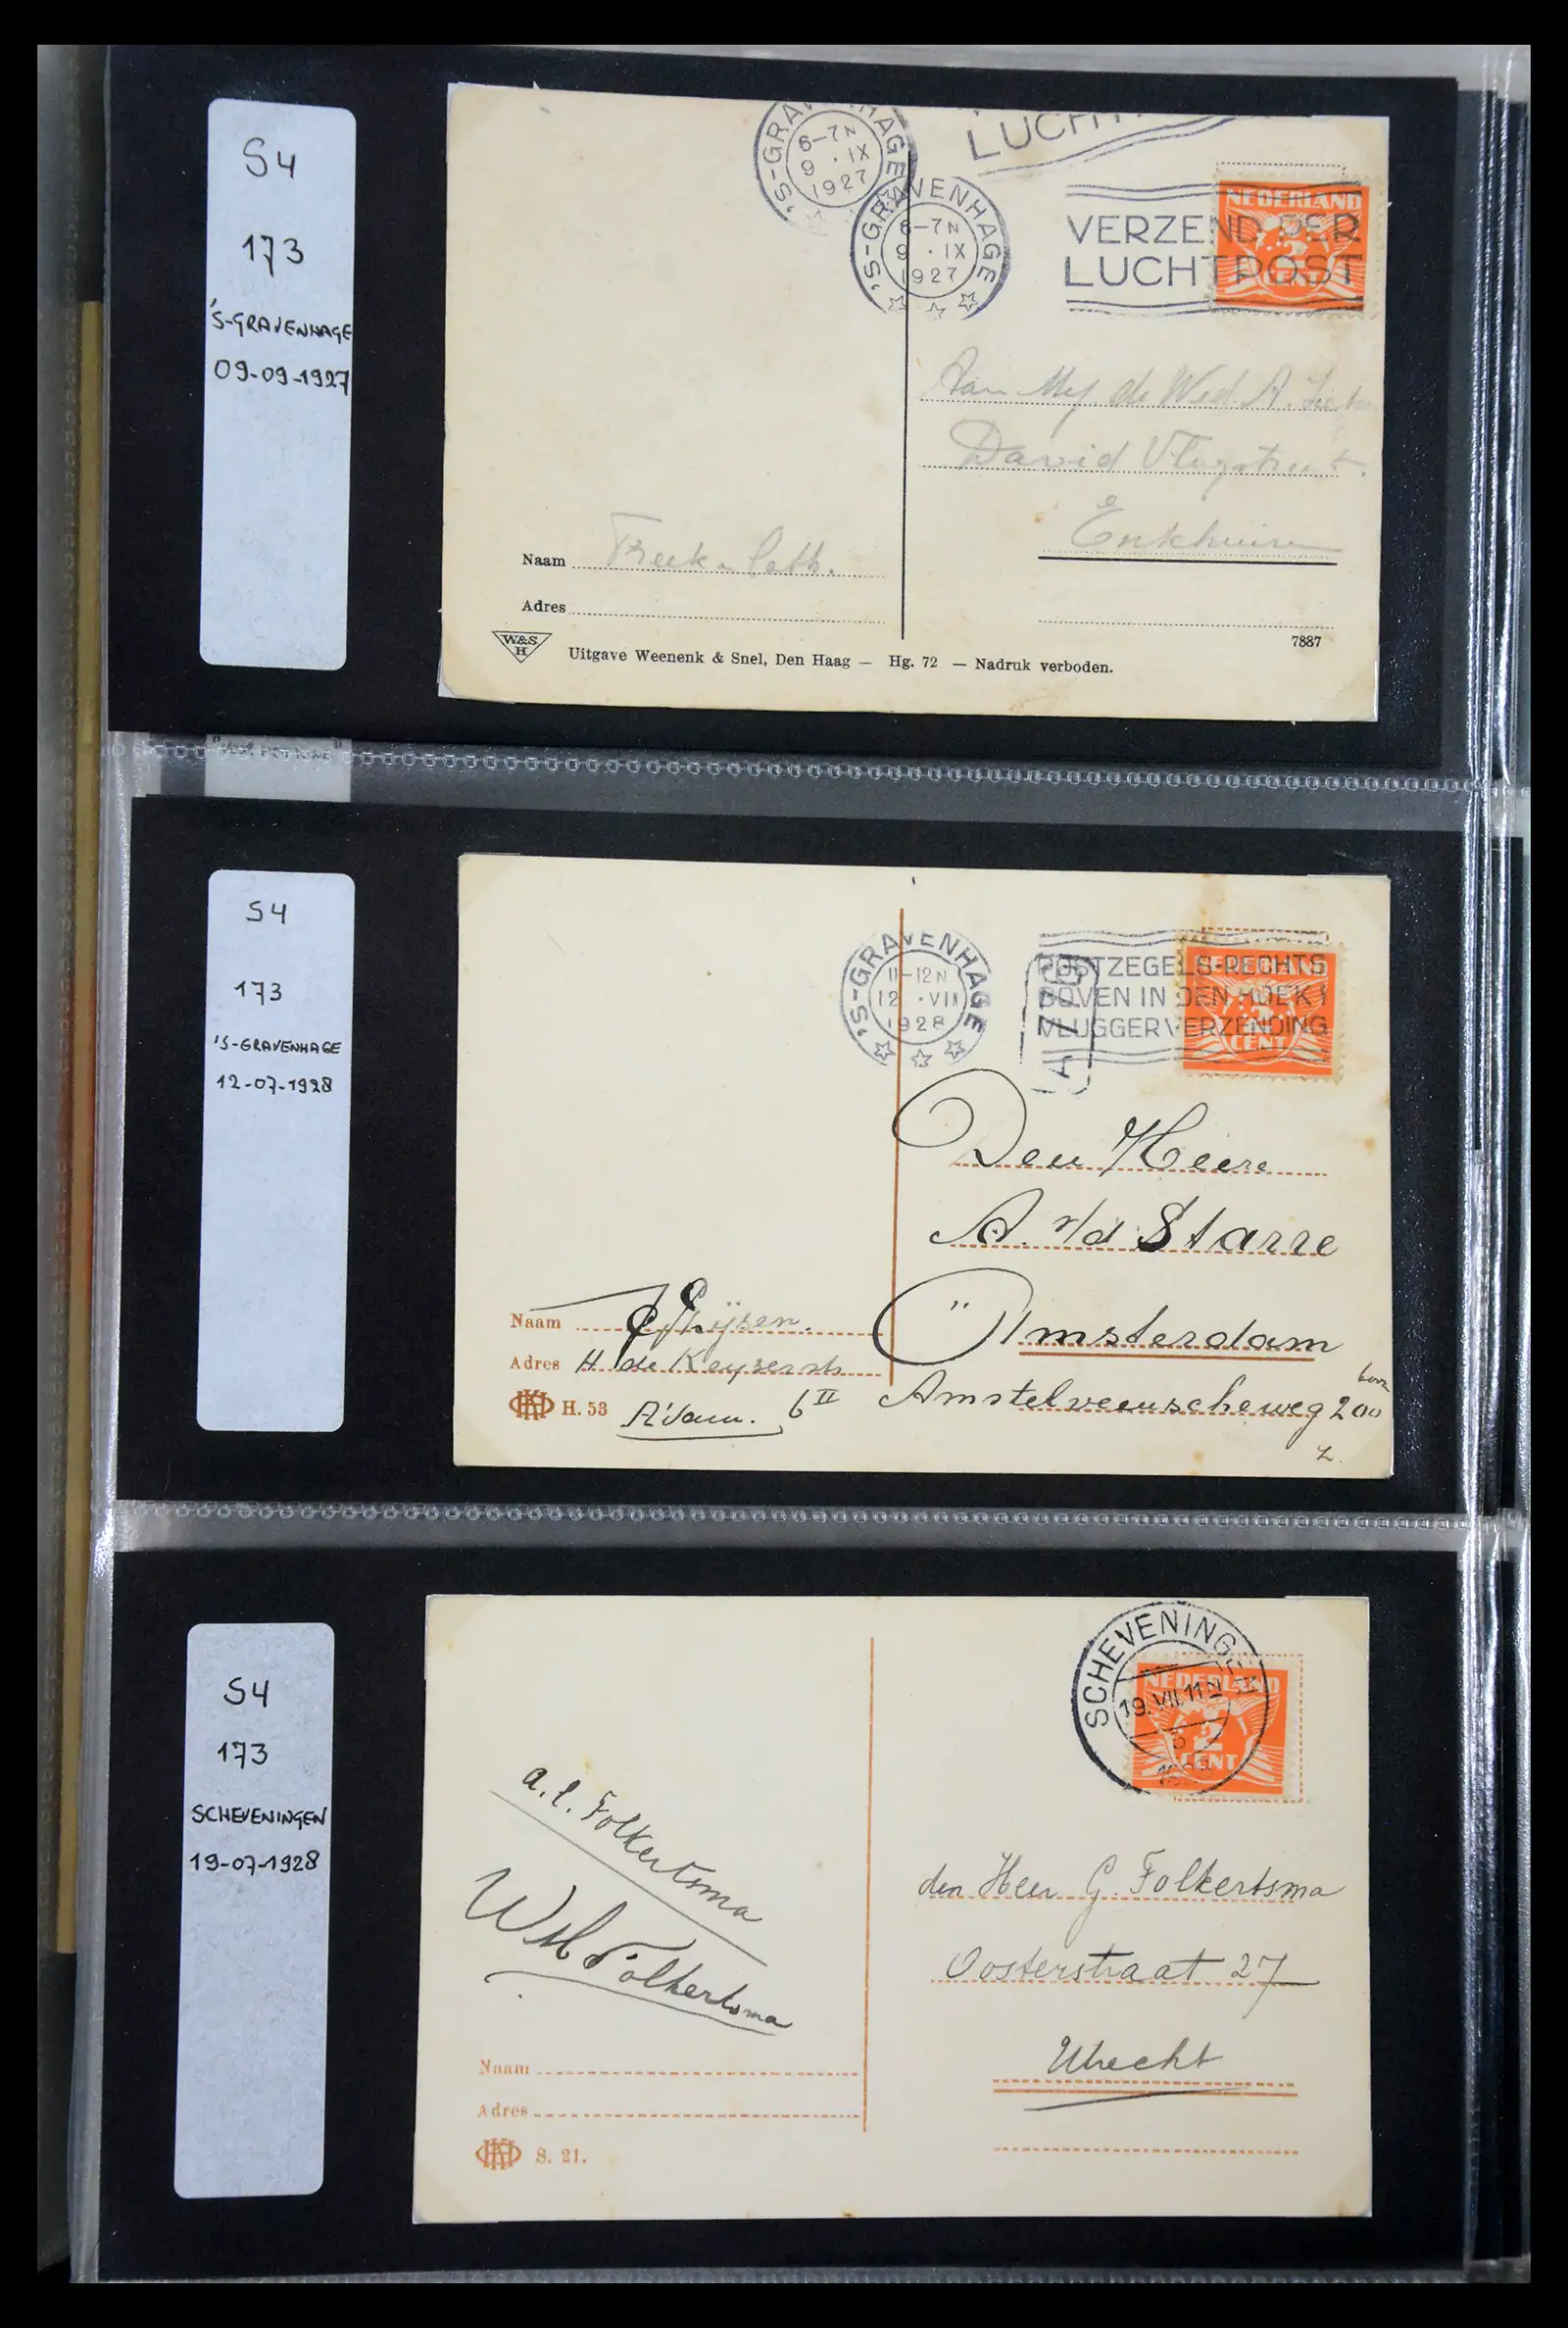 S4
173
'S-GRAVENHAGE
09-09-1927
'S-GRAVENHAGE
6-7N
9 · IX
1927
'S-GRAVENHAGE
6-7N
9 · IX
1927
LUCHT
VERZEND PER
LUCHTPOST
NEDERLAND
CENT
Aan Mej. de Wed. A.
David Vlugstraat.
Enkhuizen
Naam Freek
Adres
W&S
H
Uitgave Weenenk & Snel, Den Haag — Hg. 72 — Nadruk verboden.
7887
S4
173
'S-GRAVENHAGE
12-07-1928
'S-GRAVENHAGE
11-12N
12 · VII
1928
POSTZEGELS-RECHTS
BOVEN IN DEN HOEK
VLUGGER VERZENDING
NEDERLAND
2
CENT
Den Heere
A. v/d Starre
Amsterdam
Amstelveenscheweg 200
boven
Z.
Naam Thijsen.
Adres H. de Keyserstr
6 II
H. 53
A'dam.
S4
173
SCHEVENINGEN
19-07-1928
SCHEVENINGEN
19.VII.11N
1928
NEDERLAND
2
CENT
a. l. Folkertsma
W Folkertsma
den Heer G. Folkertsma
Oosterstraat 27
Utrecht
Naam
Adres
S. 21.